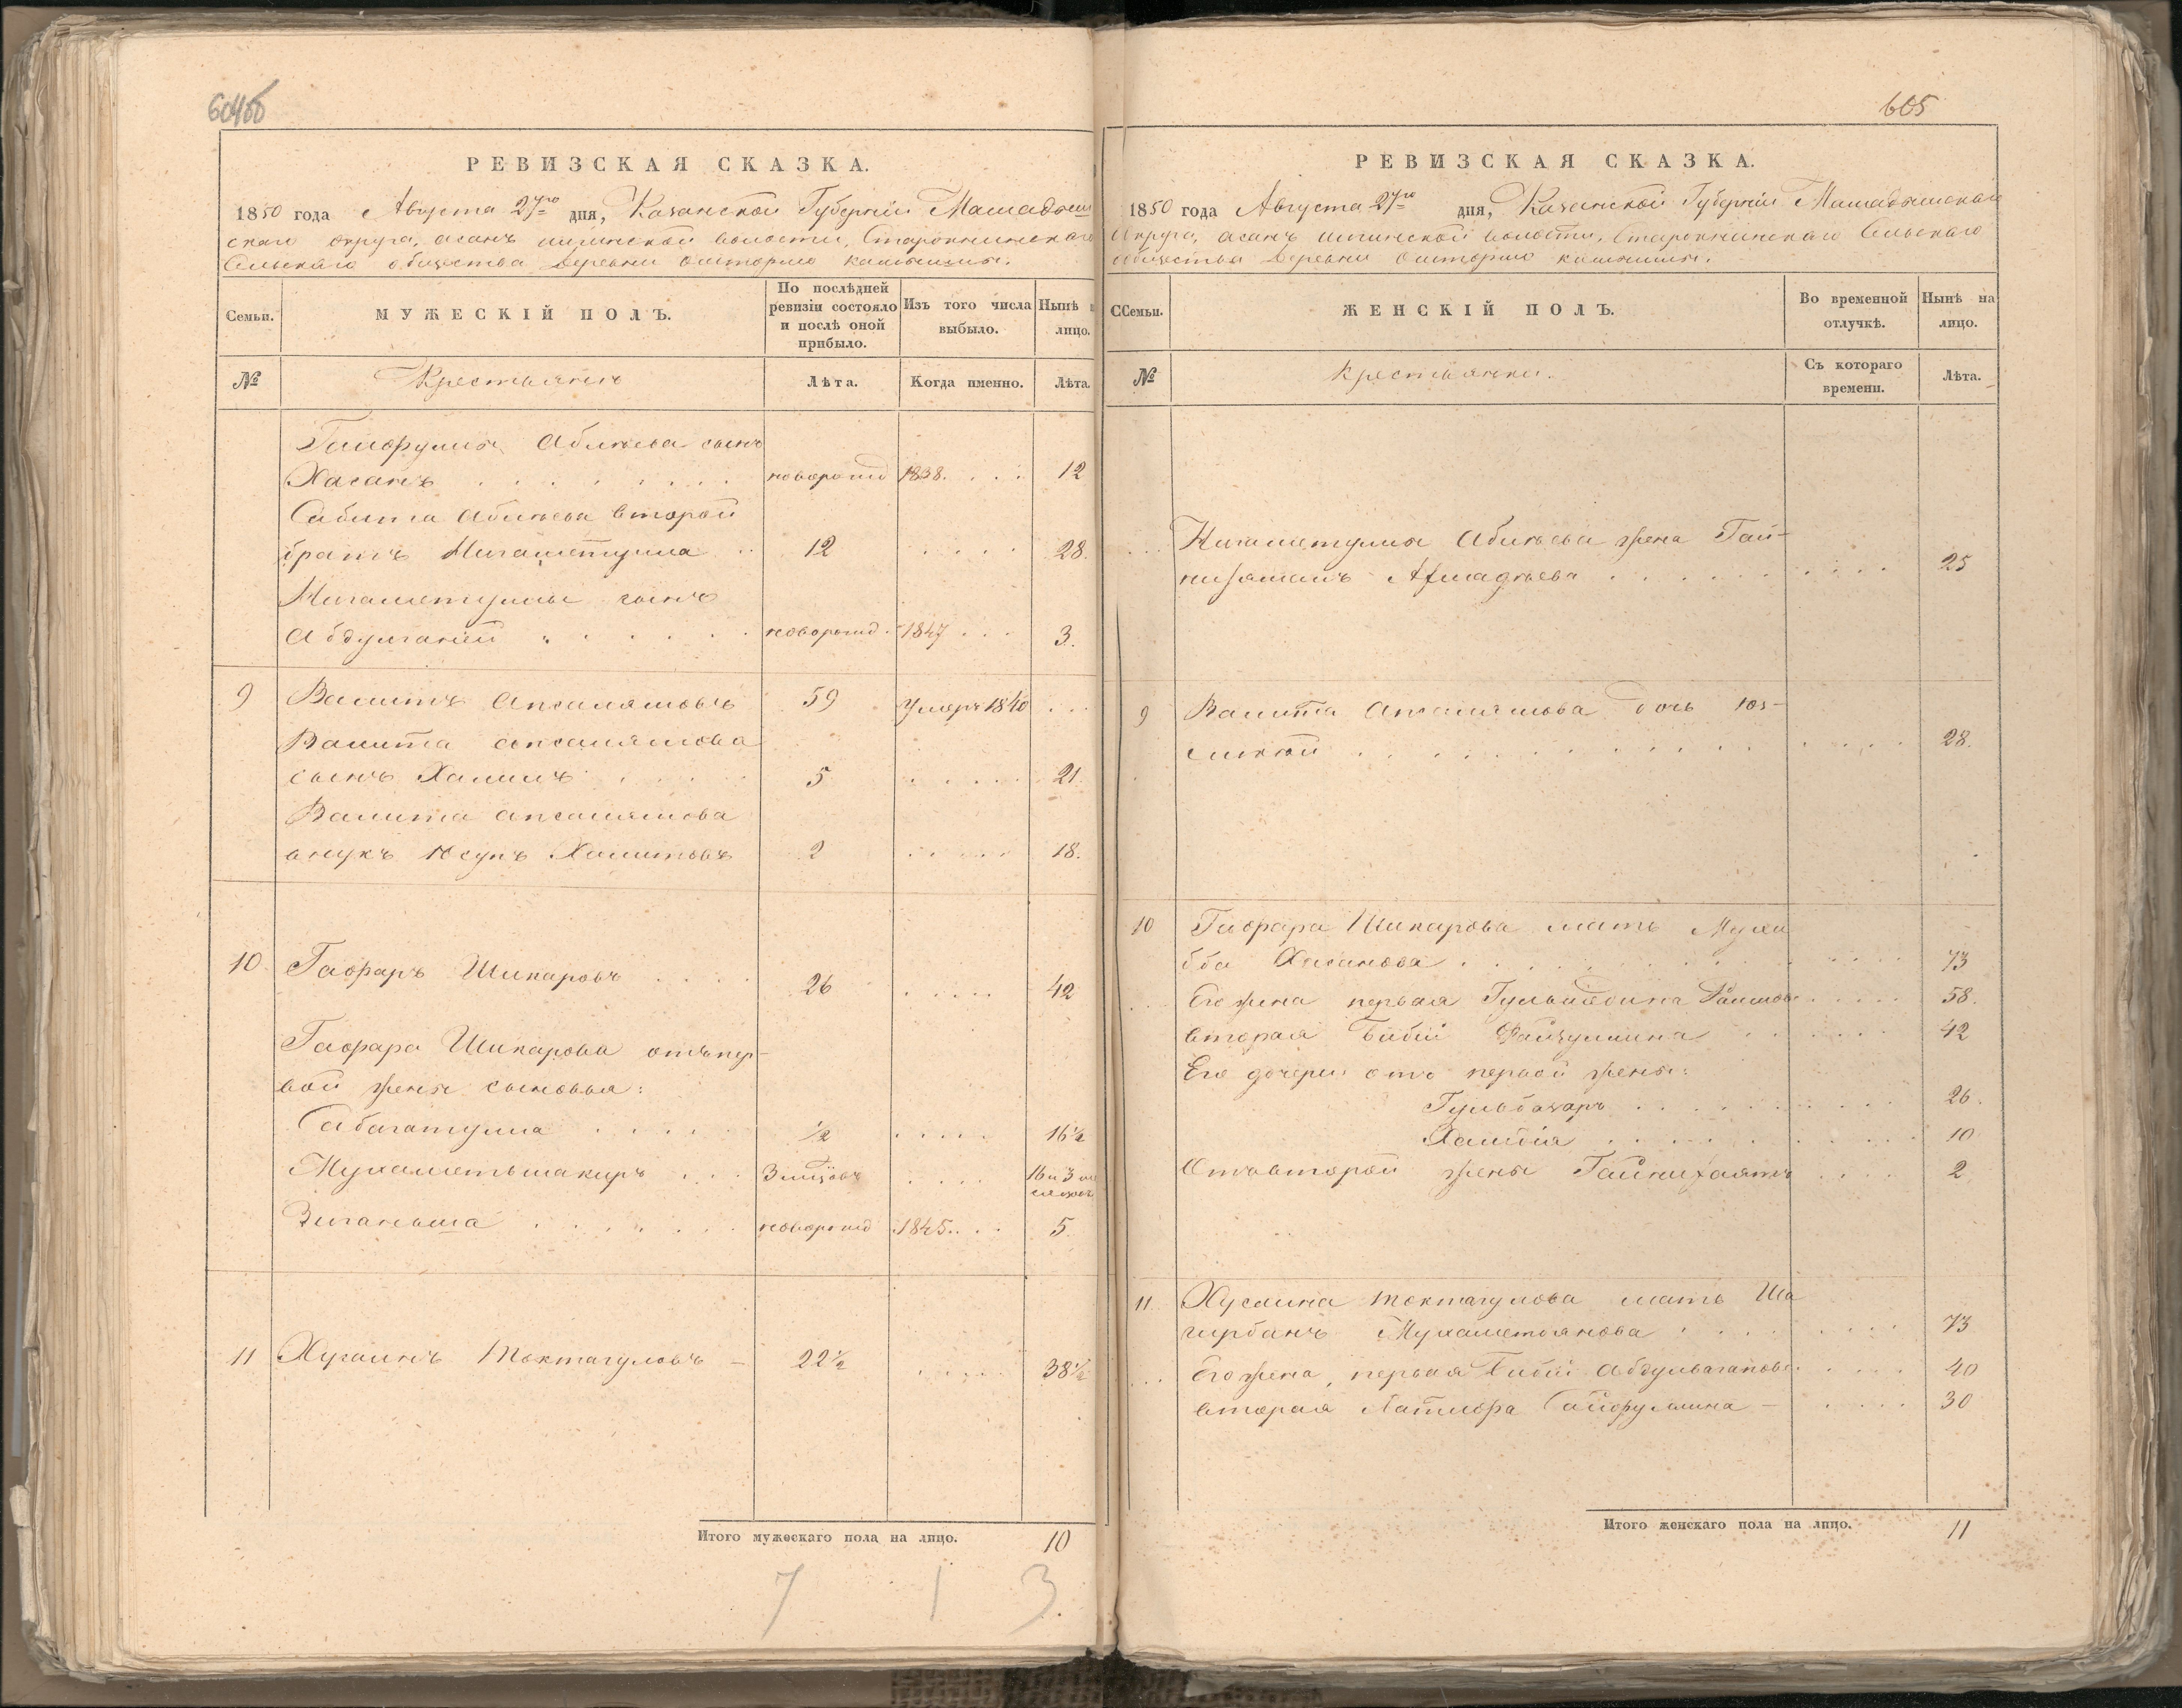 604об
РЕВИЗСКАЯ СКАЗКА.
1850 года Августа 27го дня, Казанской Губерніи Мамадыш
скаго округа, асанъ илгинской волости, Староккинскаго
Сельскаго общества деревни ошторма
Семьи.
МУЖЕСКІЙ ПОЛЪ.
По послѣдней ревизіи состояло и послѣ оной прибыло.
Изъ того числа выбыло.
Нынѣ лицо.
№
Крестьянъ
Лѣта.
Когда именно.
Лѣта.
Абліева сынъ
Хасанъ новорожд 1838. 12
Сабита Абліева второй
братъ Нигаметулла 12 28.
Нигаметуллы сынъ
Абдулганей новорожд. 1847 3.
9 Валитъ Апсалямовъ 59 умеръ 1840
Валита апсалямова
сынъ Халилъ 5 21.
Валита апсалямова
внукъ Юсупъ Халитовъ 2 18.
10 Гафаръ Шикаровъ 26 42
Гафара Шикарова отъ пер-
вой жены сыновья:
Сабагатулла 1/2 16 1/2
Мухаметьшакиръ 3 мцовъ 16 и 3 ме
сяцовъ
Зиганьша новорожд 1845. 5
11 Хусаинъ Токтагуловъ – 22 1/2 38 1/2
Итого мужескаго пола на лицо. 10
7 1 3
605
РЕВИЗСКАЯ СКАЗКА.
1850 года Августа 27го дня, Казанской Губерніи Мамадышскаго
Округа, асанъ илгинской волости, Староккинскаго Сельскаго
общества деревни ошторма
ССемьи.
ЖЕНСКІЙ ПОЛЪ.
Во временной отлучкѣ.
Нынѣ на лицо.
№
крестьянки.
Съ котораго времени.
Лѣта.
Нигаметуллы Абліева жена Гай-
нижамалъ Ахмадѣева 25
9 Валита Апсалямова дочь
28.
10 Гафара Шикарова мать Мухи
бба Хасанова 73
Его жена первая 58.
вторая Бибій Файзуллина 42
Его дочери отъ первой жены:
Гульбахаръ 26.
Халбія 10
Отъ второй жены Гайнихаятъ 2
11 Хусаина токтагулова мать Ша
гирбанъ Мухаметьянова 73
Его жена, первая Бибій Абдулвагапова 40
вторая Латифа Сайфуллина – 30
Итого женскаго пола на лицо. 11